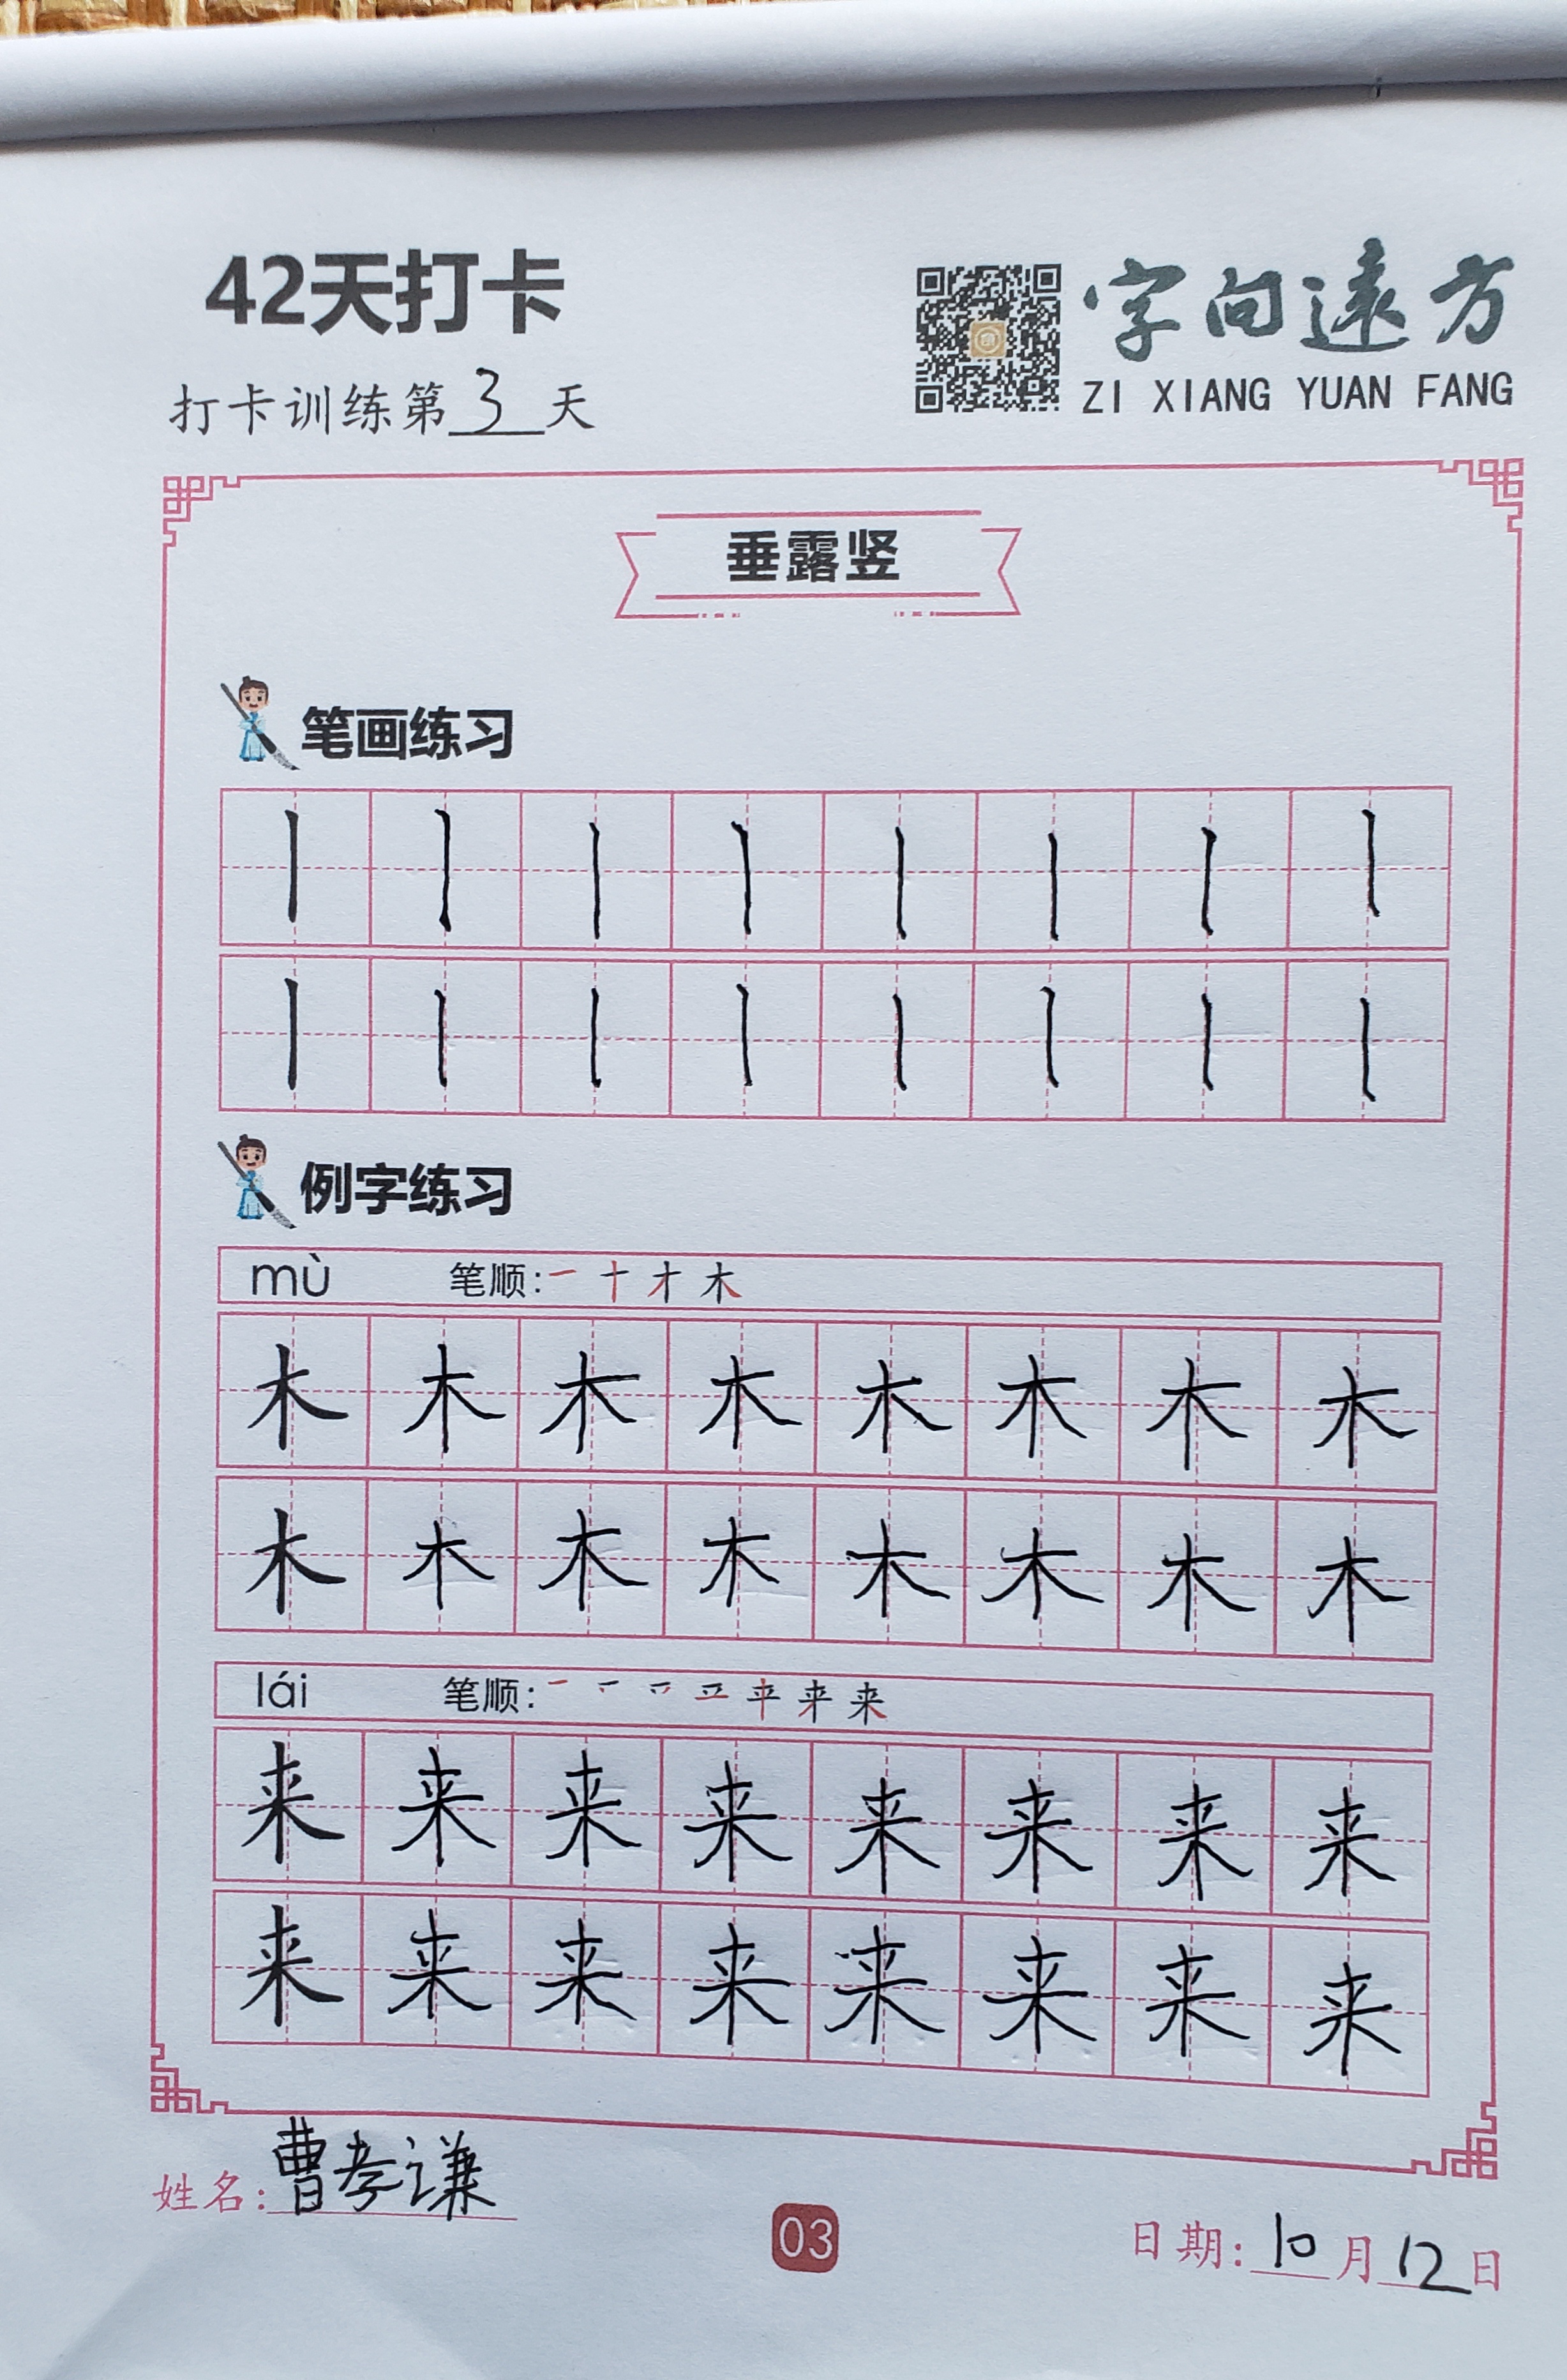 42天打卡
字向遠方
ZI XIANG YUAN FANG
打卡训练第3天
垂露竖
笔画练习
丨丨丨丨丨丨丨丨
丨丨丨丨丨丨丨丨
例字练习
mù 笔顺:一 十 才 木
木木木木木木木木
木木木木木木木木
lái 笔顺:
来来来来来来来来
来来来来来来来来
姓名:曹孝谦
03
日期:10月12日